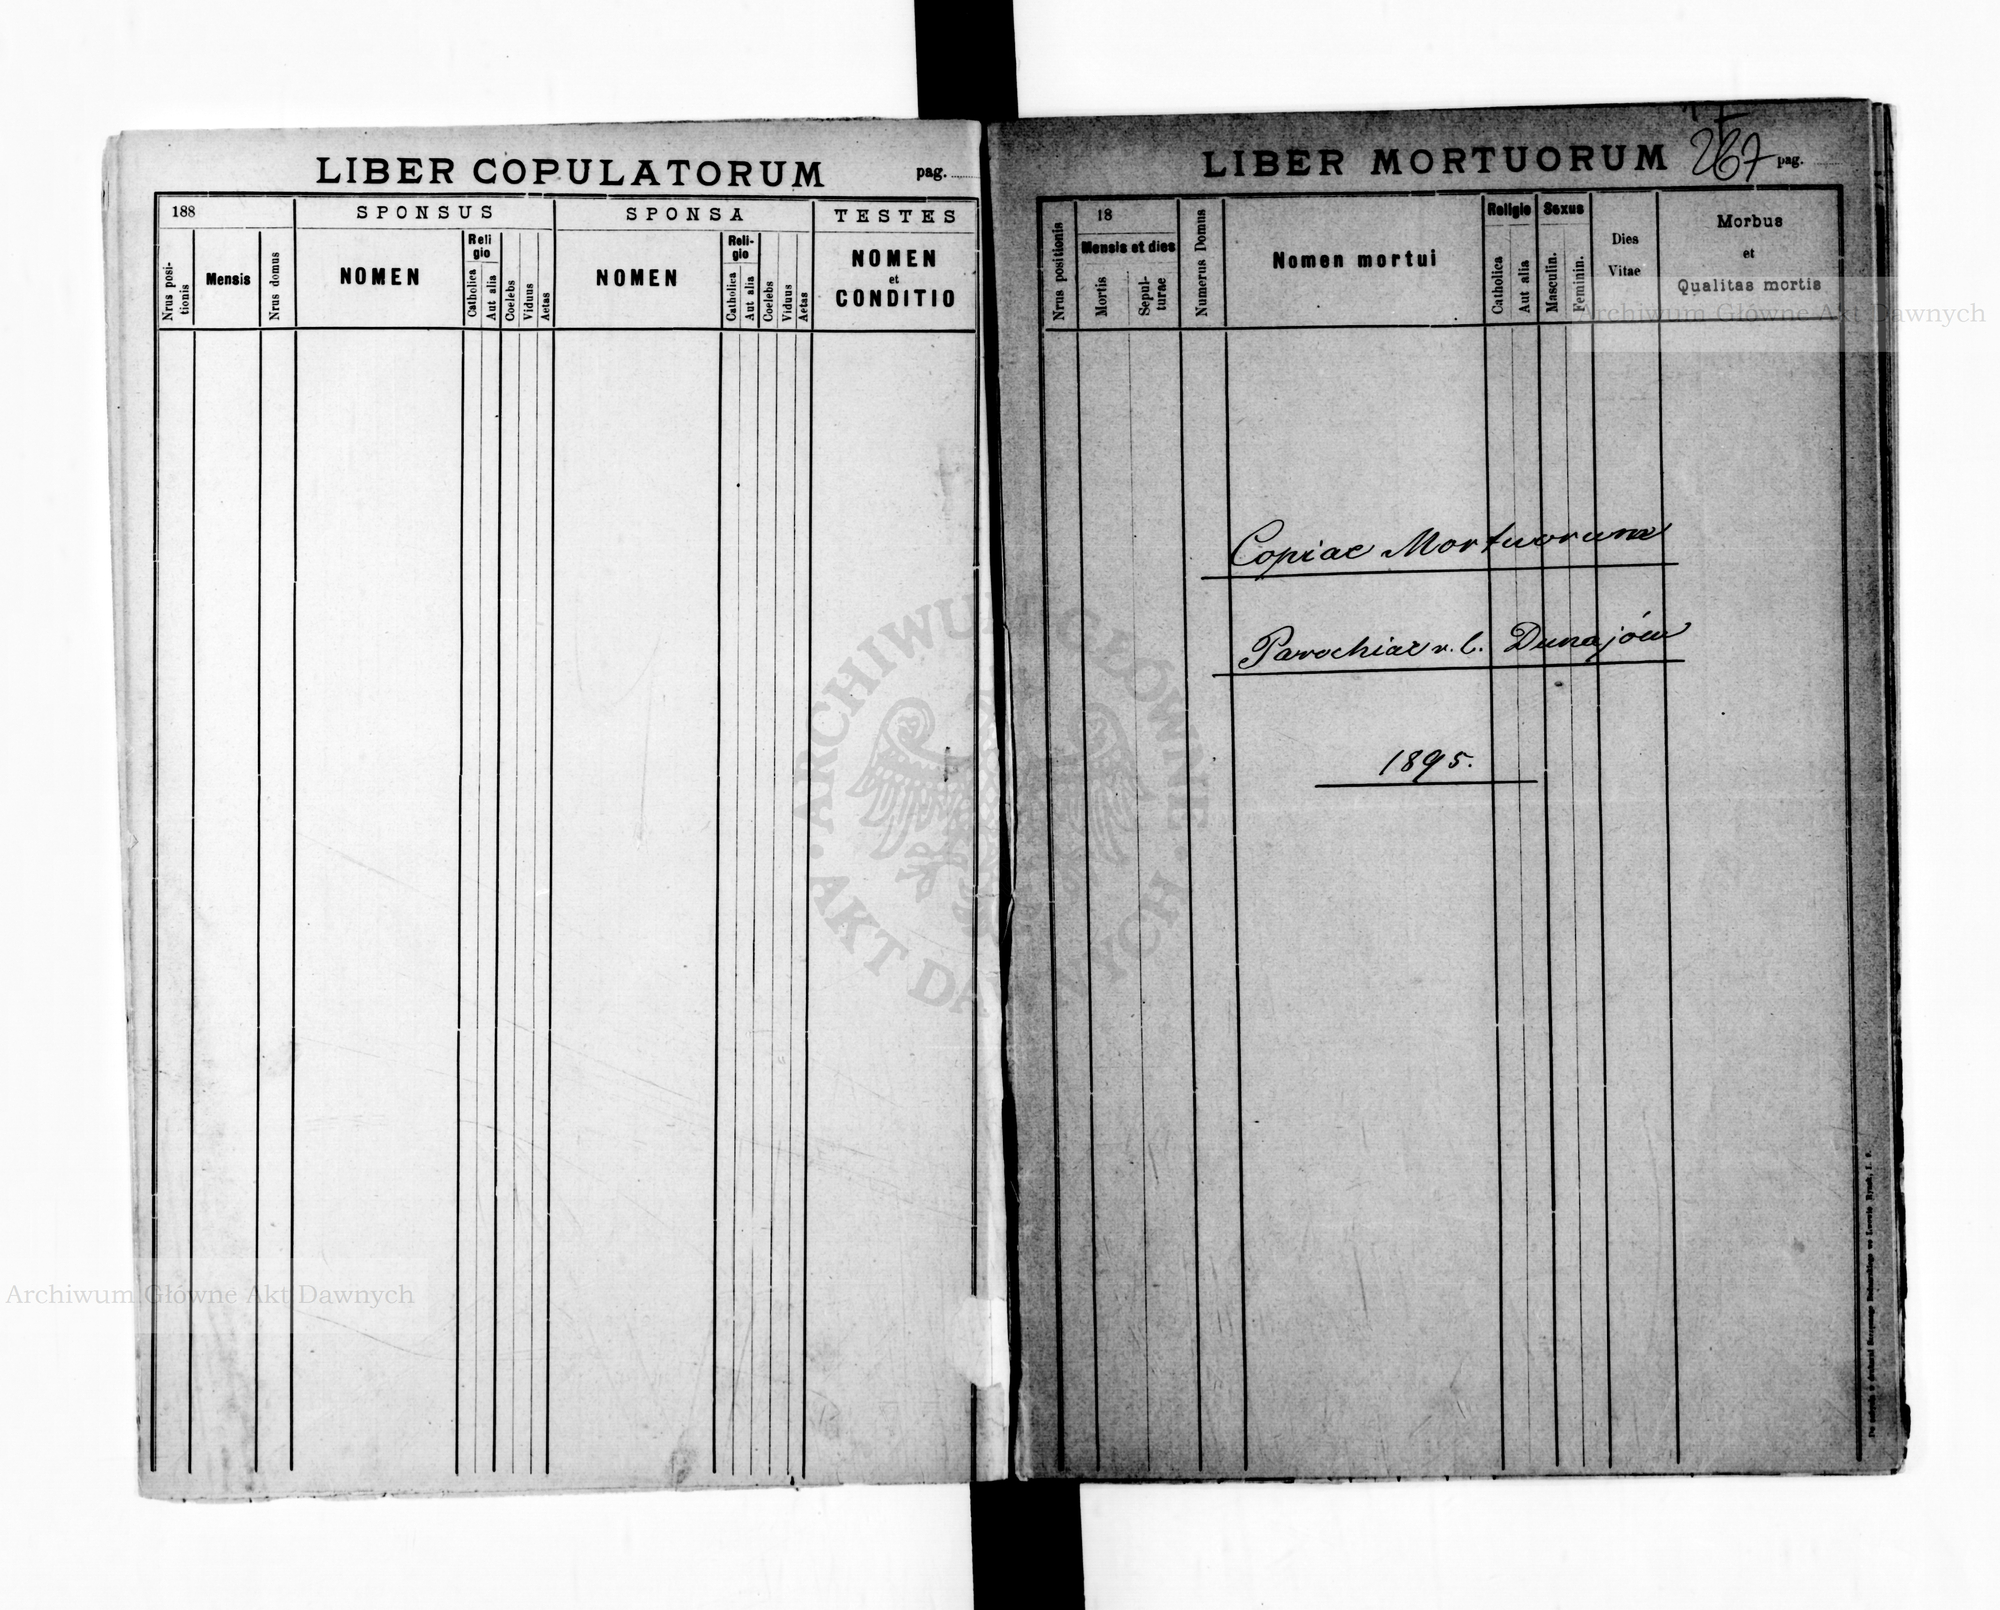 LIBER COPULATORUM pag.
188
SPONSUS
SPONSA
TESTES
Nrus posi-
tionis
Mensis
Nrus domus
NOMEN
Reli
gio
Catholica
Aut alia
Coelebs
Viduus
Aetas
NOMEN
Reli-
gio
Catholica
Aut alia
Coelebs
Viduus
Aetas
NOMEN
et
CONDITIO
LIBER MORTUORUM 267 pag.
Nrus positionis
18
Mensis et dies
Mortis
Sepul-
turae
Numerus Domus
Nomen mortui
Religio
Catholica
Aut alia
Sexus
Masculin.
Feminin.
Dies
Vitae
Morbus
et
Qualitas mortis
Copiae Mortuorum
Parochiae r. l. Dunajów
1895.
ARCHIWUM GŁÓWNE
AKT DAWNYCH
Archiwum Główne Akt Dawnych
Archiwum Główne Akt Dawnych